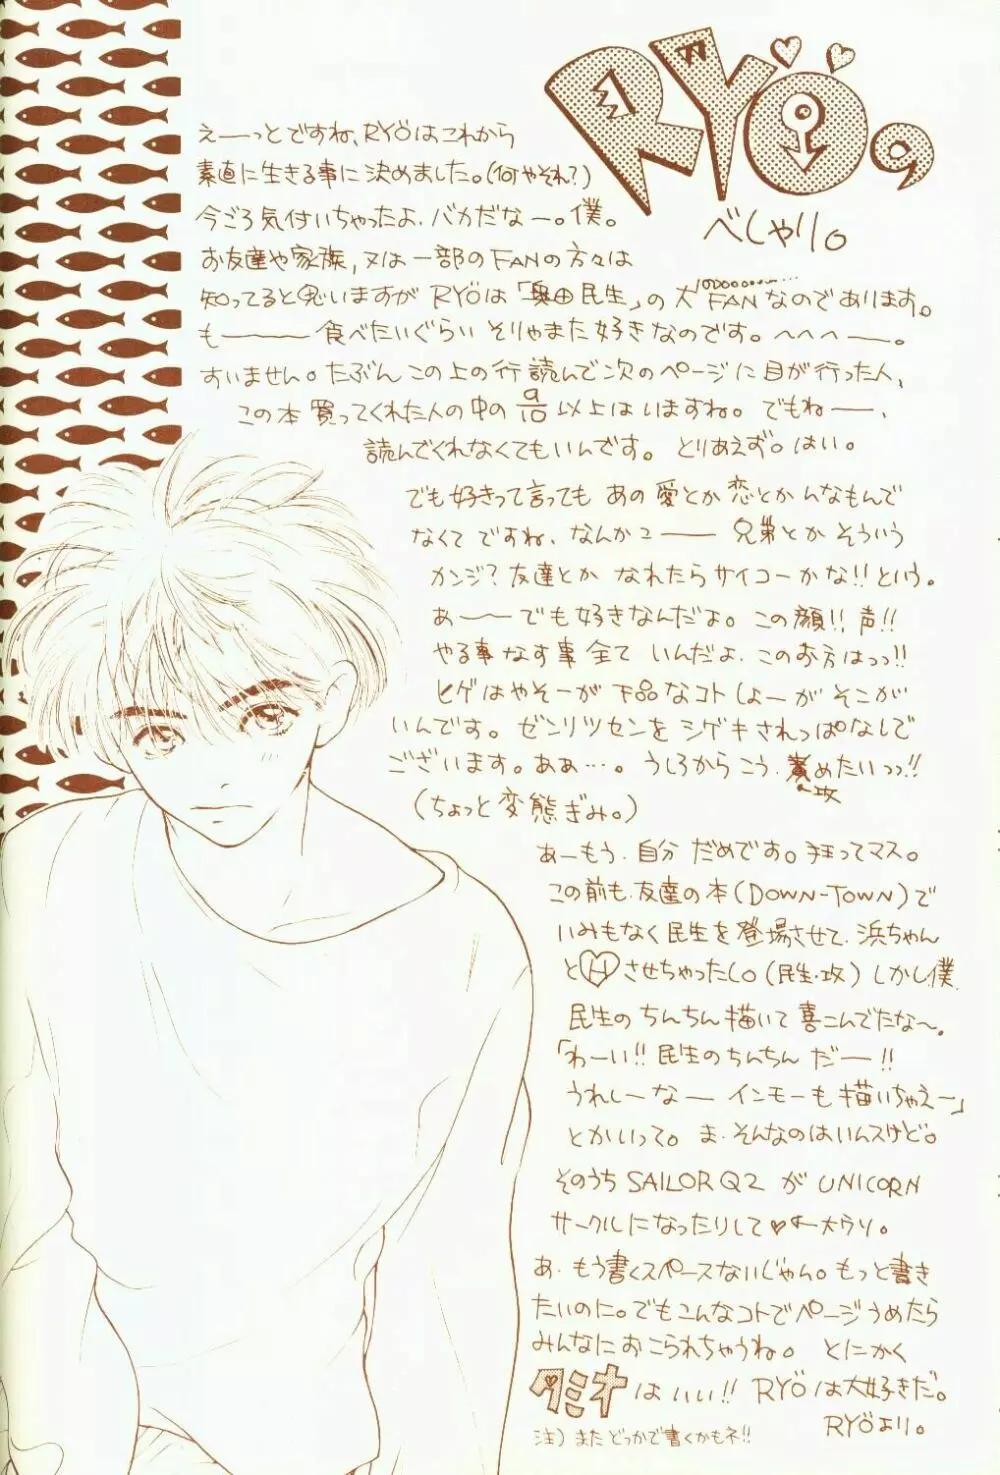 RYÖの
べしゃり。
えーっとですね、RYÖはこれから
素直に生きる事に決めました。(何やそれ?)
今ごろ気付いちゃったよ、バカだなー。僕。
お友達や家族、又は一部のFANの方々は
知ってると思いますが RYÖは「奥田民生」の大FANなのであります。
もー食べたいぐらい そりゃまた好きなのです。へへへー。
すいません。たぶん この上の行 読んで次のページに目が行った人、
この本買ってくれた人の中の 9/10 以上はいますね。でもねー、
読んでくれなくてもいんです。とりあえず。はい。
でも好きって言っても あの 愛とか恋とか んなもんで
なくて ですね、なんかこー 兄弟とか そういう
カンジ?友達とか なれたらサイコーかな!!という。
あーでも好きなんだよ。この顔!!声!!
やる事なす事 全て いんだよ、このお方はっっ!!
ヒゲはやそーが 下品なコトしよーが そこが
いんです。ゼンリツセンを シゲキされっぱなしで
ございます。ああ…。うしろから こう、責めたいっっ!!
攻
(ちょっと変態ぎみ。)
あーもう、自分 だめです。狂ってマス。
この前も、友達の本(DOWN-TOWN)で
いみもなく民生を登場させて、浜ちゃん
とHさせちゃったし。(民生・攻)しかし、僕、
民生の ちんちん描いて 喜こんでたな〜。
「わーい!!民生のちんちん だー!!
うれしーなー インモーも描いちゃえー」
とかいって。ま、そんなのはいんスけど。
そのうち SAILOR Q2 が UNICORN
サークルになったりして♥←大ウソ。
あ、もう書くスペースないじゃん。もっと書き
たいのに。でもこんなコトでページうめたら
みんなにおこられちゃうね。とにかく
タミオはいい!! RYÖは大好きだ。
RYÖより。
注)またどっかで書くかもネ!!